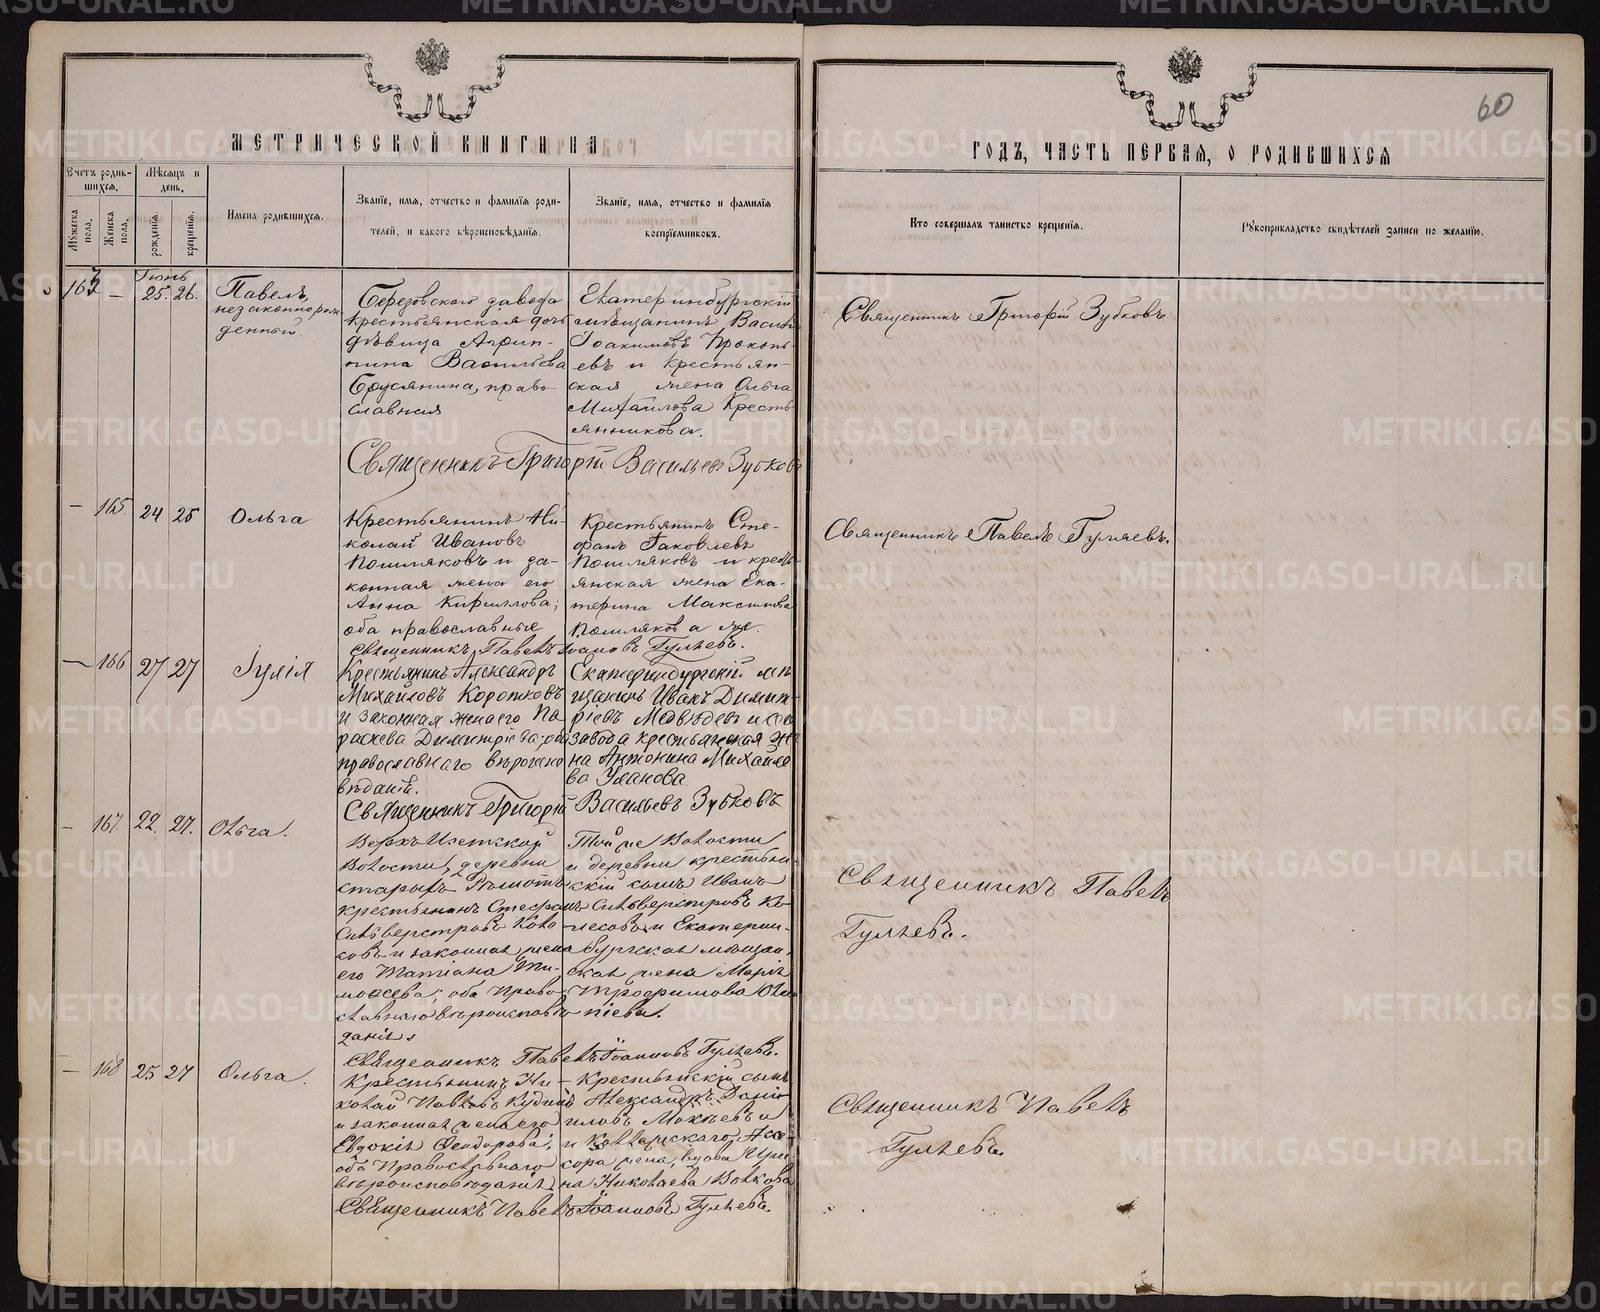 МЕТРИЧЕСКОЙ КНИГИ НА
ГОДЪ, ЧАСТЬ ПЕРВАЯ, О РОДИВШИХСЯ
60
Счетъ родив-
шихся.
Мѣсяцъ и
день.
Мужеска
пола.
Женска
пола.
рожденія.
крещенія.
Имена родившихся.
Званіе, имя, отчество и фамилія роди-
телей, и какого вѣроисповѣданія.
Званіе, имя, отчество и фамилія
воспріемниковъ.
Кто совершалъ таинство крещенія.
Рукоприкладство свидѣтелей записи по желанію.
Іюнь
25. 26.
Павелъ,
незаконнорож
денный
Березовского завода
крестьянская дочь
дѣвица Агрип-
пина Васильева
Брусянина, право-
славная
Екатеринбургскій
мѣщанинъ Васил
Іоакимовъ Прокопь-
евъ и крестьян-
ская жена Ольга
Михайлова Кресть
янникова.
Священникъ Григорій Зубковъ
Священникъ Григорій Васильевъ Зубковъ
— 165. 24 25
Ольга
Крестьянинъ Ни-
колай Ивановъ
Пошляковъ и за-
конная жена его
Анна Кириллова;
оба православные
Крестьянинъ Сте-
фанъ Яковлевъ
Пошляковъ и кресть-
янская жена Ека-
терина Максимова
Пошлякова же.
Священникъ Павелъ Гуляевъ.
Священникъ Павелъ Іоанновъ Гуляевъ.
— 166 27 27
Іулія
Крестьянинъ Александръ
Михайловъ Коротковъ
и законная жена его Па
раскева Димитріева, оба
православнаго вѣроиспо
вѣданія.
Екатеринбургскій мѣ
щанинъ Иванъ Димит-
ріевъ Медвѣдевъ и
завода крестьянская же
на Антонина Михайло
ва Уланова
Священникъ Григорій Васильевъ Зубковъ
— 167. 22. 27.
Ольга.
Верхъ-Исетской
Волости, деревни
старыхъ Рѣшотъ
крестьянинъ Стефанъ
Сильверстровъ Коле
совъ и законная жена
его Татіана Ти-
моѳеева; оба Право-
славнаго вѣроисповѣ
данія.
Той же Волости
и деревни крестьян
скій сынъ Иванъ
Сильверстровъ Ко-
лесовъ и Екатерин-
бургская мѣщан-
ская жена Марія
Трофимова
Священникъ Павелъ
Гуляевъ.
Священникъ Павелъ Іоанновъ Гуляевъ.
— 168 25 27
Ольга.
Крестьянинъ Ни-
колай Павловъ
и законная жена его
Евдокія Ѳеодорова;
оба Православнаго
вѣроисповѣданія
Крестьянскій сынъ
Александръ Дани
иловъ Мокѣевъ и
Коллежскаго Ассе-
сора жена, вдова Ири
на Николаева Волкова
Священникъ Павелъ
Гуляевъ.
Священникъ Павелъ Іоанновъ Гуляевъ.
METRIKI.GASO-URAL.RU